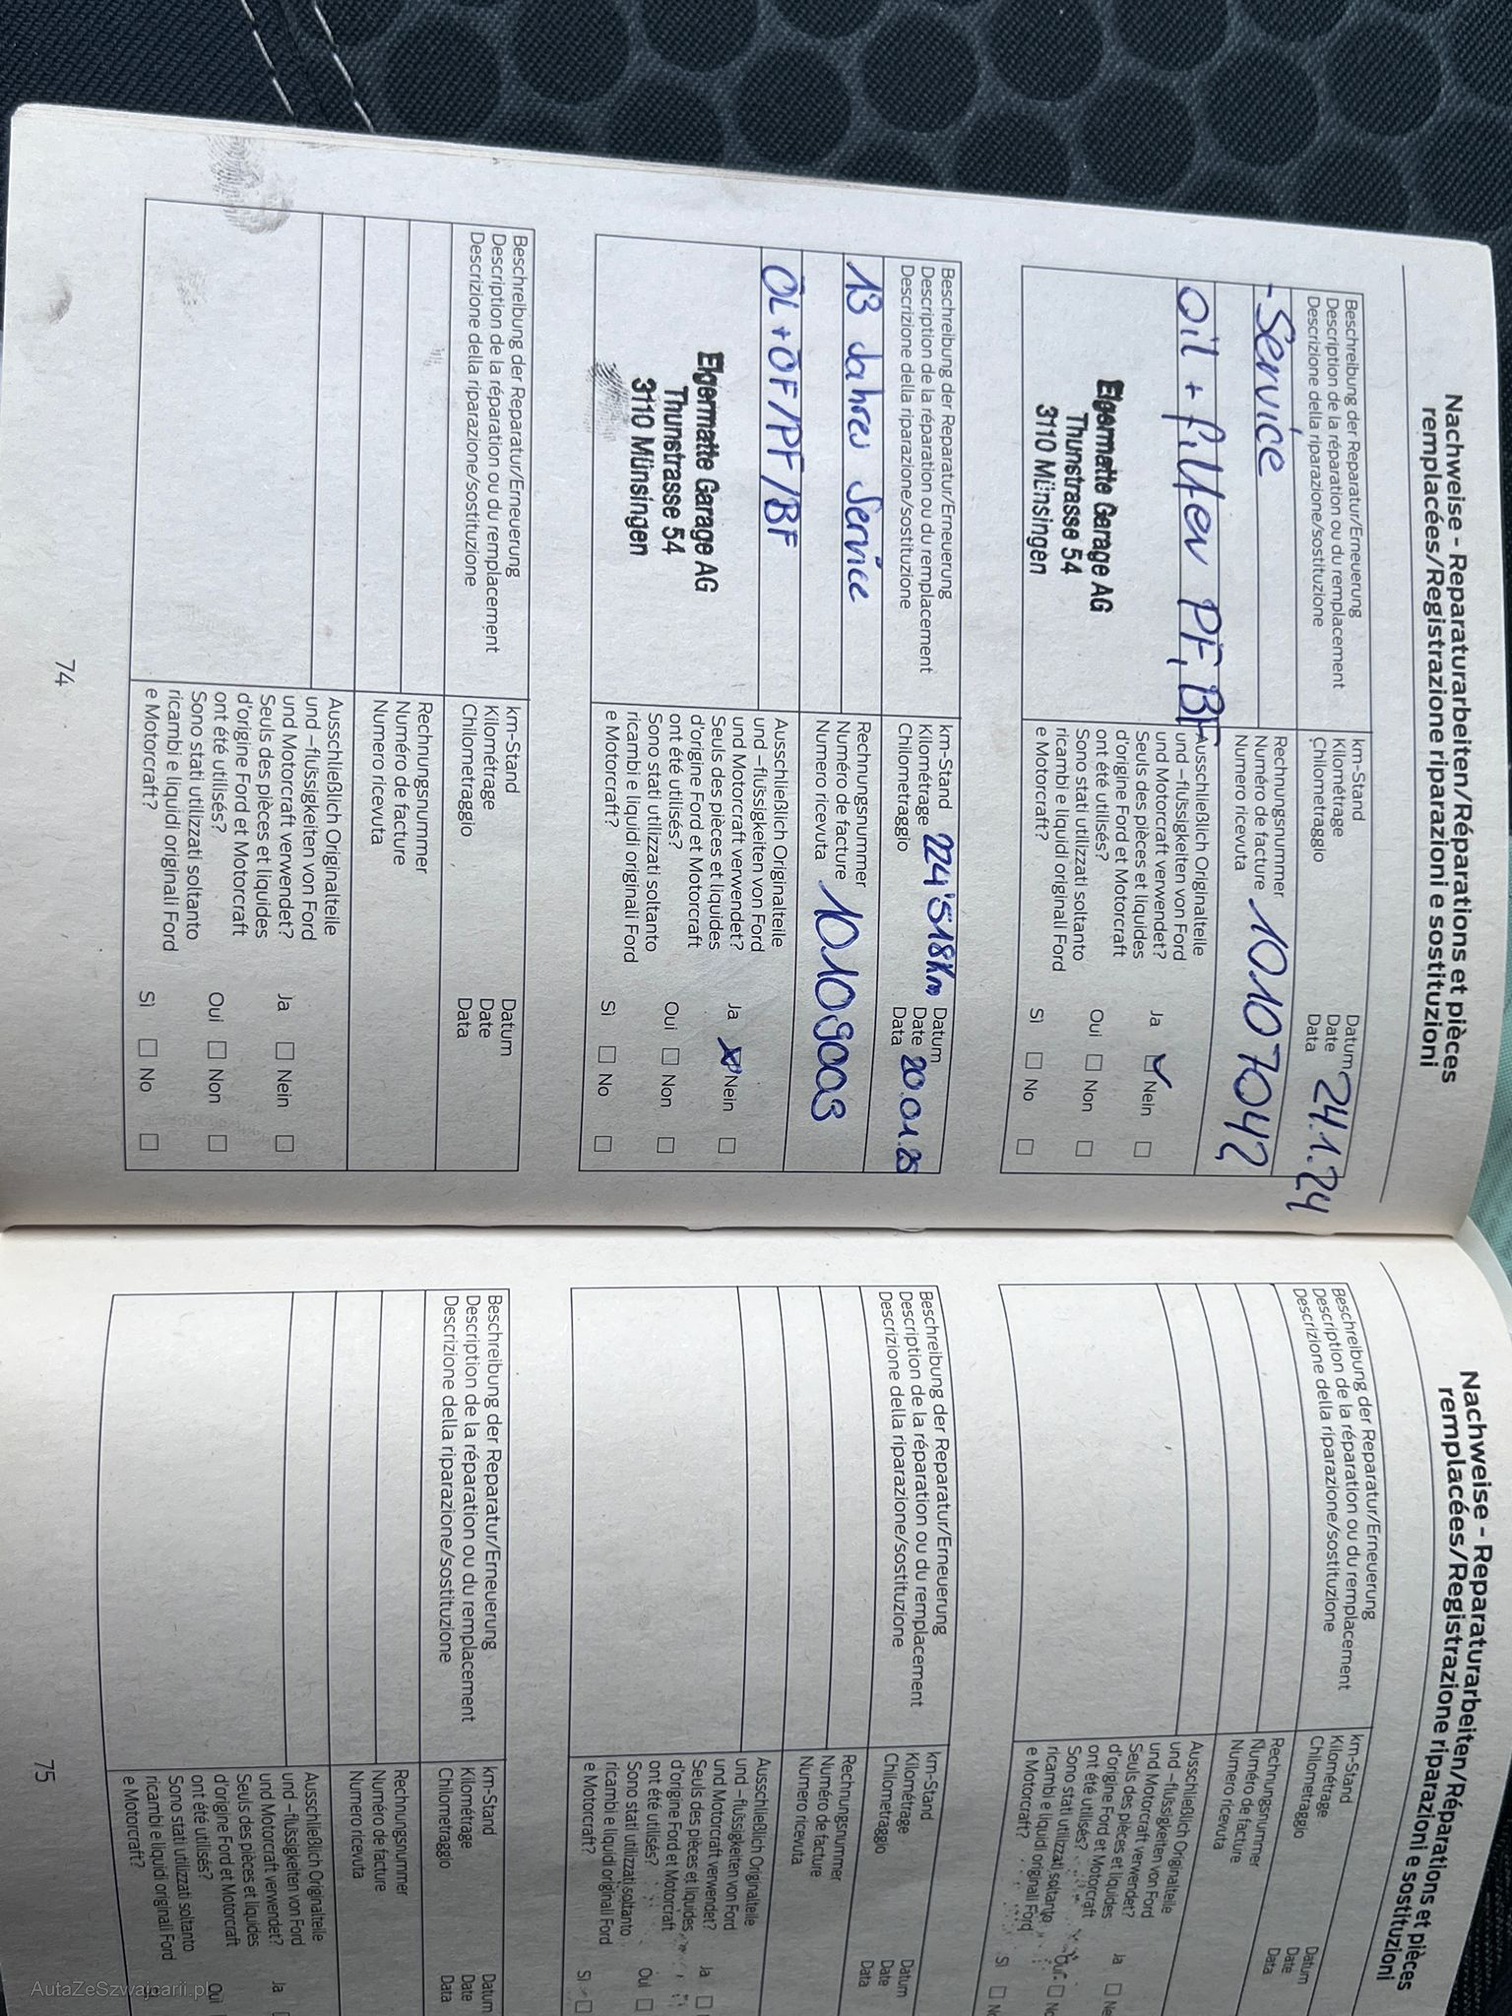 Nachweise - Reparaturarbeiten/Réparations et pièces
remplacées/Registrazione riparazioni e sostituzioni
Beschreibung der Reparatur/Erneuerung
Description de la réparation ou du remplacement
Descrizione della riparazione/sostituzione
km-Stand
Kilométrage
Chilometraggio
Datum
Date
Data
24.1.24
- Service
Rechnungsnummer
Numéro de facture
Numero ricevuta
10107042
Oil + filter PF, BF
Elgermatte Garage AG
Thunstrasse 54
3110 Münsingen
Ausschließlich Originalteile
und -flüssigkeiten von Ford
und Motorcraft verwendet?
Ja ✓ Nein ☐
Seuls des pièces et liquides
d'origine Ford et Motorcraft
ont été utilisés?
Oui ☐ Non ☐
Sono stati utilizzati soltanto
ricambi e liquidi originali Ford
e Motorcraft?
Sì ☐ No ☐
Beschreibung der Reparatur/Erneuerung
Description de la réparation ou du remplacement
Descrizione della riparazione/sostituzione
km-Stand
Kilométrage
Chilometraggio
224'518 Km
Datum
Date
Data
20.01.25
13 Jahres Service
Rechnungsnummer
Numéro de facture
Numero ricevuta
10109003
ÖL + ÖF/PF/BF
Elgermatte Garage AG
Thunstrasse 54
3110 Münsingen
Ausschließlich Originalteile
und -flüssigkeiten von Ford
und Motorcraft verwendet?
Ja ☒ Nein ☐
Seuls des pièces et liquides
d'origine Ford et Motorcraft
ont été utilisés?
Oui ☐ Non ☐
Sono stati utilizzati soltanto
ricambi e liquidi originali Ford
e Motorcraft?
Sì ☐ No ☐
Beschreibung der Reparatur/Erneuerung
Description de la réparation ou du remplacement
Descrizione della riparazione/sostituzione
km-Stand
Kilométrage
Chilometraggio
Datum
Date
Data
Rechnungsnummer
Numéro de facture
Numero ricevuta
Ausschließlich Originalteile
und -flüssigkeiten von Ford
und Motorcraft verwendet?
Ja ☐ Nein ☐
Seuls des pièces et liquides
d'origine Ford et Motorcraft
ont été utilisés?
Oui ☐ Non ☐
Sono stati utilizzati soltanto
ricambi e liquidi originali Ford
e Motorcraft?
Sì ☐ No ☐
74
Nachweise - Reparaturarbeiten/Réparations et pièces
remplacées/Registrazione riparazioni e sostituzioni
Beschreibung der Reparatur/Erneuerung
Description de la réparation ou du remplacement
Descrizione della riparazione/sostituzione
km-Stand
Kilométrage
Chilometraggio
Datum
Date
Data
Rechnungsnummer
Numéro de facture
Numero ricevuta
Ausschließlich Originalteile
und -flüssigkeiten von Ford
und Motorcraft verwendet?
Ja ☐ Ne
Seuls des pièces et liquides
d'origine Ford et Motorcraft
ont été utilisés?
Oui ☐ No
Sono stati utilizzati soltanto
ricambi e liquidi originali Ford
e Motorcraft?
Sì ☐ N
Beschreibung der Reparatur/Erneuerung
Description de la réparation ou du remplacement
Descrizione della riparazione/sostituzione
km-Stand
Kilométrage
Chilometraggio
Datum
Date
Data
Rechnungsnummer
Numéro de facture
Numero ricevuta
Ausschließlich Originalteile
und -flüssigkeiten von Ford
und Motorcraft verwendet?
Ja ☐
Seuls des pièces et liquides
d'origine Ford et Motorcraft
ont été utilisés?
Oui ☐
Sono stati utilizzati soltanto
ricambi e liquidi originali Ford
e Motorcraft?
Sì ☐
Beschreibung der Reparatur/Erneuerung
Description de la réparation ou du remplacement
Descrizione della riparazione/sostituzione
km-Stand
Kilométrage
Chilometraggio
Datum
Date
Data
Rechnungsnummer
Numéro de facture
Numero ricevuta
Ausschließlich Originalteile
und -flüssigkeiten von Ford
und Motorcraft verwendet?
Ja
Seuls des pièces et liquides
d'origine Ford et Motorcraft
ont été utilisés?
Oui
Sono stati utilizzati soltanto
ricambi e liquidi originali Ford
e Motorcraft?
75
AutaZeSzwajcarii.pl